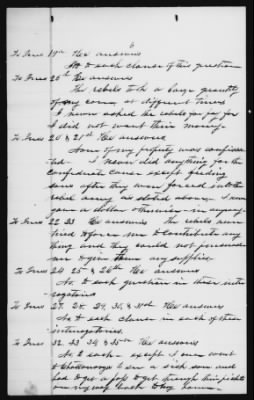 6
To Inter 19th He answers
No to each clause of this question
To Inter 20th He answers
The rebels took a large quantity
of my corn at different times
I never asked the rebels for pay for
I did not want their money.
To Inter 20 & 21st He answers
None of my property was confisca-
ted. I never did anything for the
Confederate cause except feeding
sons after they were forced into the
rebel army as stated above. I never
a dollar otherwise in any way
To Inter 22 23 He answers The rebels
tried to force me to contribute any
thing and they could not
me to give them any supplies
To Inter 24 25 & 26th He answers
No to each question in these inter-
rogatories
To Inter 27. 28. 29, 30, & 31st He answers
No to each clause in each of these
interrogatories.
To Inter 32. 33. 34 & 35th He answers
No to each - except I once went
to Chattanooga to see a sick son and
had to get a pass to get through their pickets
on my way back to my home